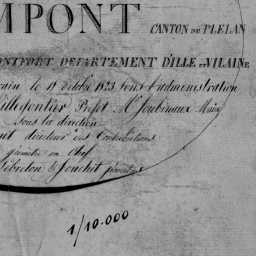 MPONT CANTON DE PLELAN
ONTFORT DÉPARTEMENT D'ILLE ET VILAINE
le 19 octobre 1823 sous l'administration
Préfet Mr Joubinaux Maire
Sous la direction
ant directeur des Contributions
géomètre en Chef
Lebreton & Jouchit
1/10.000